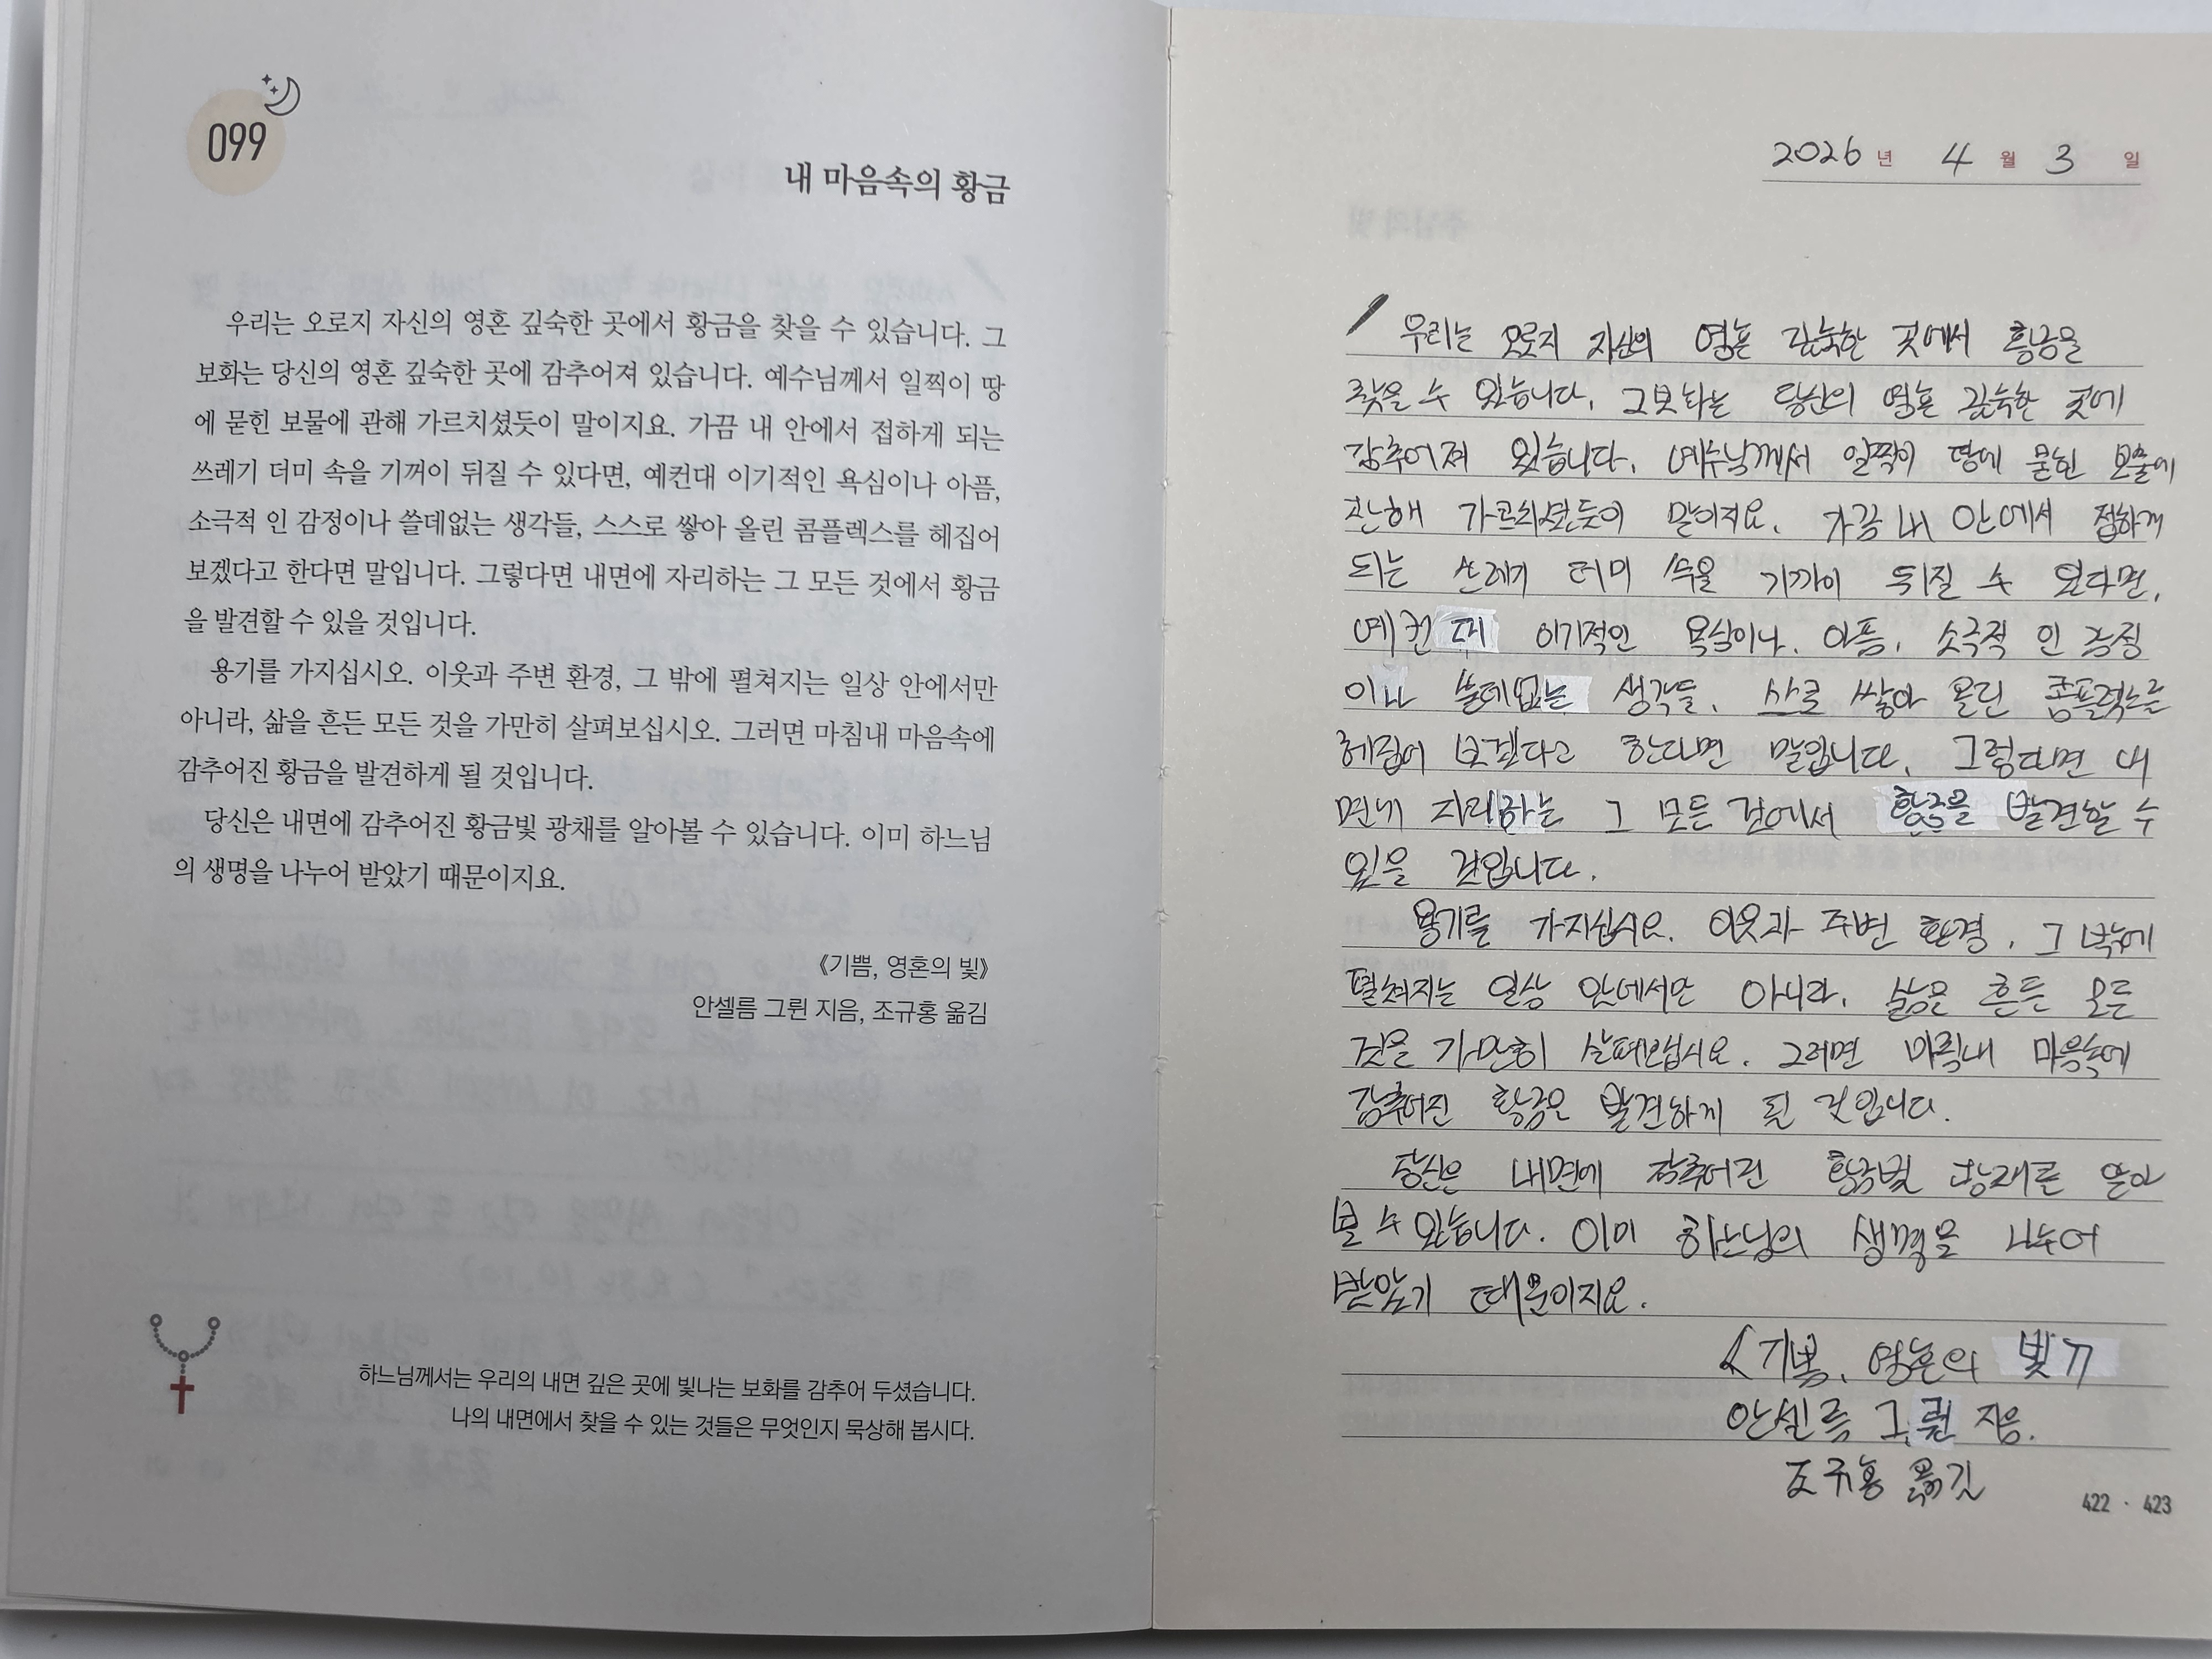 099
내 마음속의 황금
우리는 오로지 자신의 영혼 깊숙한 곳에서 황금을 찾을 수 있습니다. 그
보화는 당신의 영혼 깊숙한 곳에 감추어져 있습니다. 예수님께서 일찍이 땅
에 묻힌 보물에 관해 가르치셨듯이 말이지요. 가끔 내 안에서 접하게 되는
쓰레기 더미 속을 기꺼이 뒤질 수 있다면, 예컨대 이기적인 욕심이나 아픔,
소극적 인 감정이나 쓸데없는 생각들, 스스로 쌓아 올린 콤플렉스를 헤집어
보겠다고 한다면 말입니다. 그렇다면 내면에 자리하는 그 모든 것에서 황금
을 발견할 수 있을 것입니다.
용기를 가지십시오. 이웃과 주변 환경, 그 밖에 펼쳐지는 일상 안에서만
아니라, 삶을 흔든 모든 것을 가만히 살펴보십시오. 그러면 마침내 마음속에
감추어진 황금을 발견하게 될 것입니다.
당신은 내면에 감추어진 황금빛 광채를 알아볼 수 있습니다. 이미 하느님
의 생명을 나누어 받았기 때문이지요.
《기쁨, 영혼의 빛》
안셀름 그륀 지음, 조규홍 옮김
하느님께서는 우리의 내면 깊은 곳에 빛나는 보화를 감추어 두셨습니다.
나의 내면에서 찾을 수 있는 것들은 무엇인지 묵상해 봅시다.
2026년 4월 3일
우리는 오로지 자신의 영혼 깊숙한 곳에서 황금을
찾을 수 있습니다. 그보화는 당신의 영혼 깊숙한 곳에
감추어져 있습니다. 예수님께서 일찍이 땅에 묻힌 보물에
관해 가르치셨듯이 말이지요. 가끔 내 안에서 접하게
되는 쓰레기 더미 속을 기꺼이 뒤질 수 있다면,
예컨대 이기적인 욕심이나. 아픔, 소극적 인 감정
이나 쓸데없는 생각들, 스스로 쌓아 올린 콤플렉스를
헤집어 보겠다고 한다면 말입니다. 그렇다면 내
면에 자리하는 그 모든 것에서 황금을 발견할 수
있을 것입니다.
용기를 가지십시오. 이웃과 주변 환경, 그 밖에
펼쳐지는 일상 안에서만 아니라, 삶은 흔든 모든
것을 가만히 살펴보십시오. 그러면 마침내 마음속에
감추어진 황금은 발견하게 될 것입니다.
당신은 내면에 감추어진 황금빛 광채를 알아
볼 수 있습니다. 이미 하느님의 생명을 나누어
받았기 때문이지요.
《기쁨, 영혼의 빛》
안셀름 그륀 지음.
조규홍 옮김
422 · 423